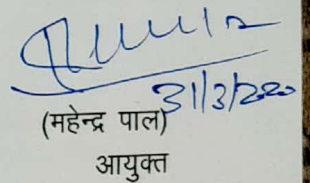 31/3/2020
(महेन्द्र पाल)
आयुक्त